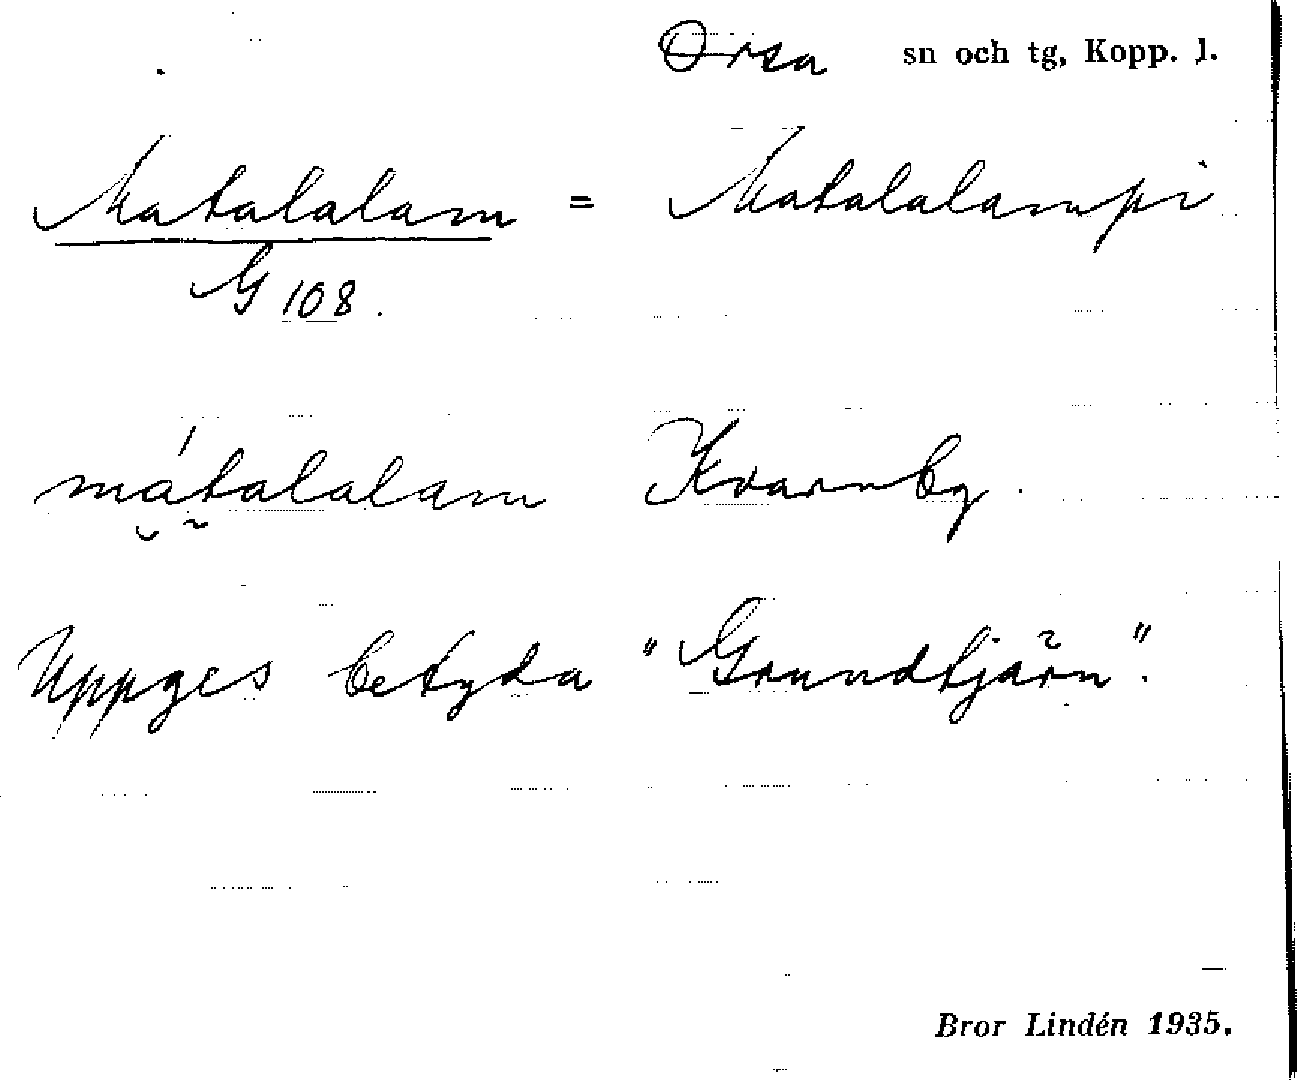 Orsa sn och tg, Kopp. l.
Matalalam = Matalalampi
G 108.
mátalalam Kvarnby.
Uppges betyda "Grundtjärn".
Bror Lindén 1935.